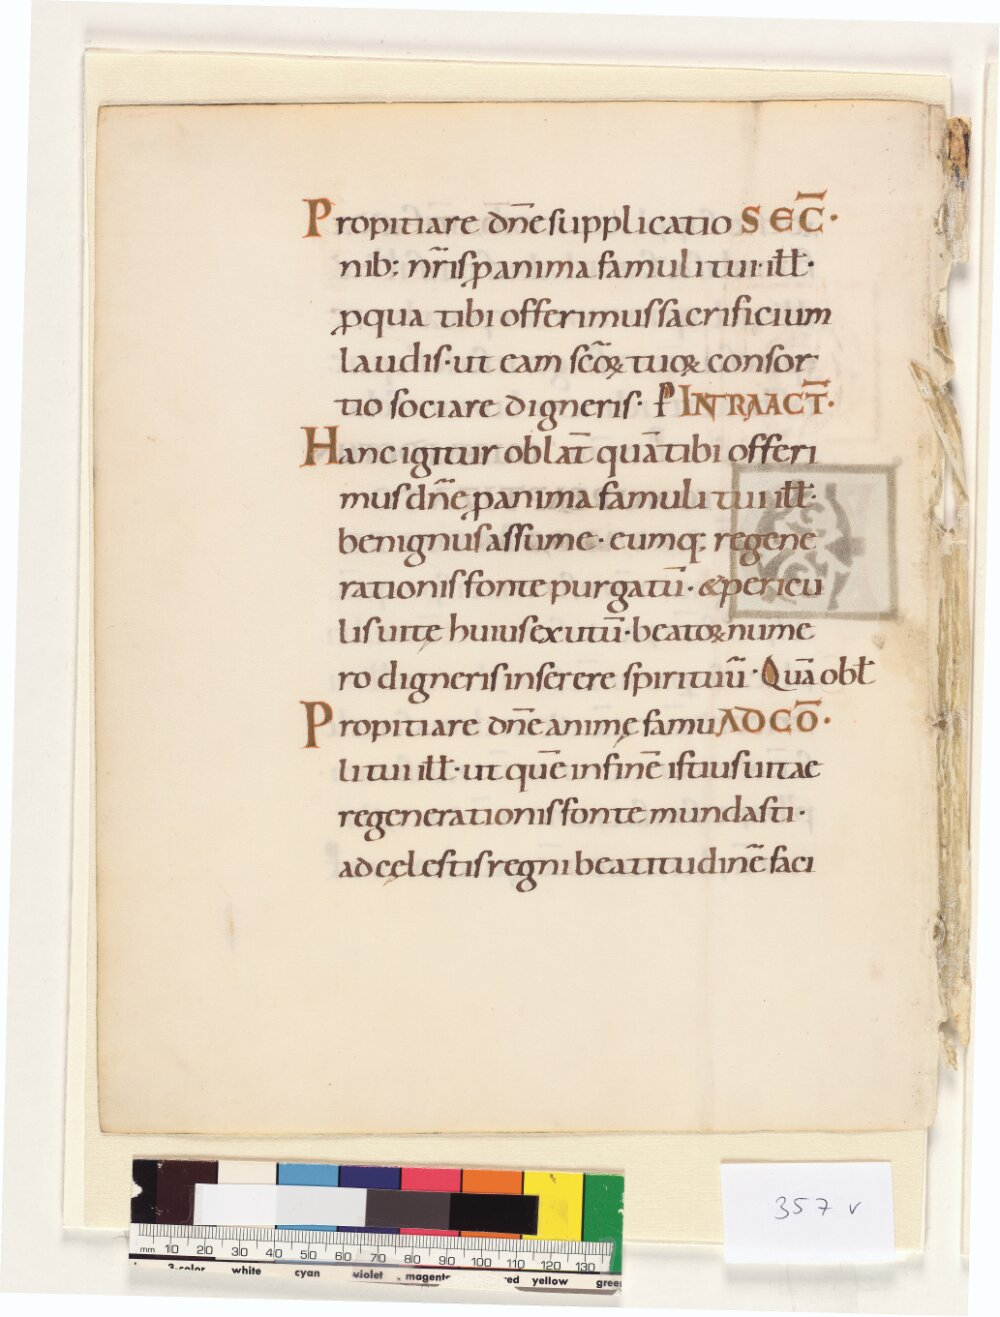 Propitiare dn̄e supplicatio SEC̄·
nib; nr̄is ꝑ anima famuli tui· ill̄·
ꝑ qua tibi offerimus sacrificium
laudis· ut eam sc̄oꝝ tuoꝝ consor
tio sociare digneris· ꝑ INFRA ACT̄·
Hanc igitur oblat̄ quā tibi offeri
mus dn̄e ꝑ anima famuli tui ill̄·
benignus assume· eumq; regene
rationis fonte purgatū· & pericu
lis uitę huius exutū· beatoꝝ nume
ro digneris inserere spirituū· Quā obł
Propitiare dn̄e animę famu AD CŌ·
li tui ill̄· ut quē in finē istius uitae
regenerationis fonte mundasti·
ad cęlestis regni beatitudinē faci
357 v
mm 10 20 30 40 50 60 70 80 90 100 110 120 130
3-color white cyan violet magent red yellow gree